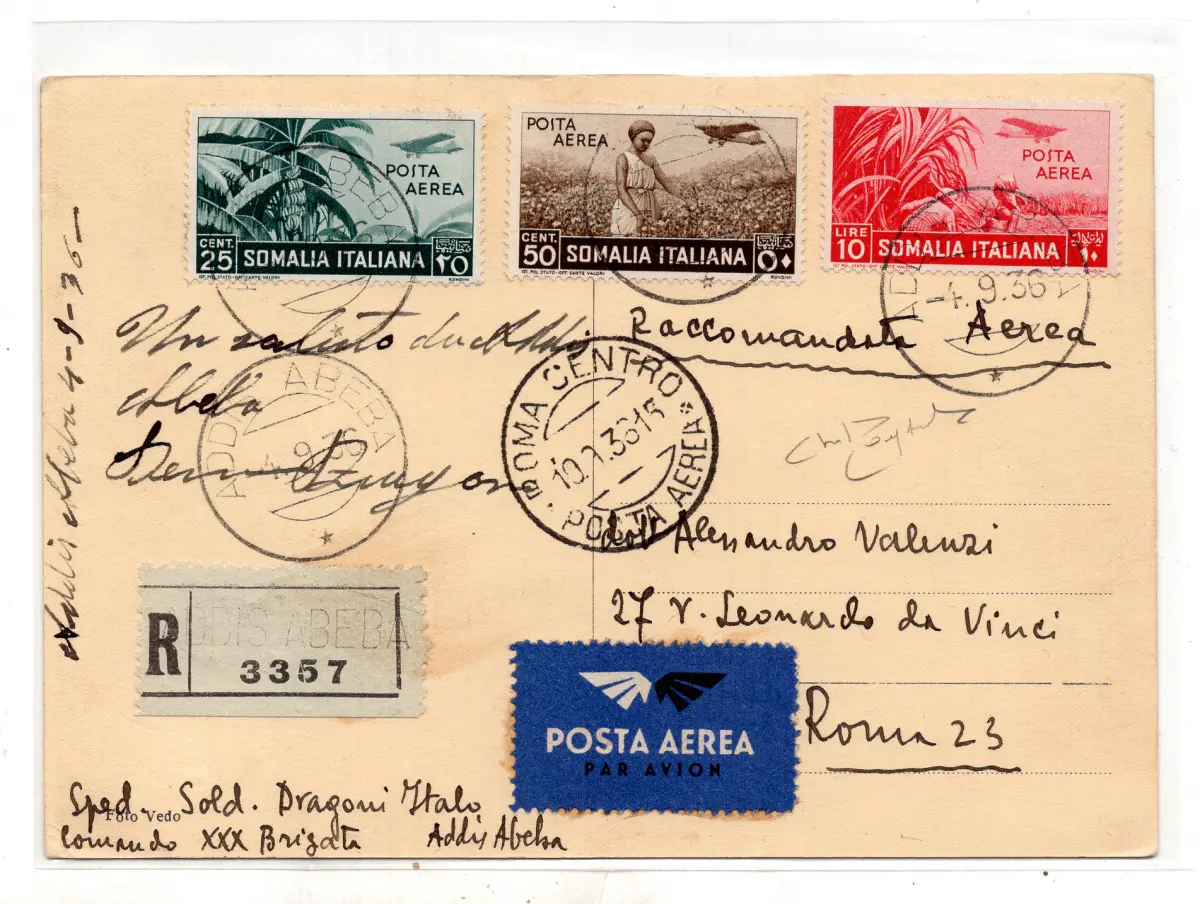 POSTA
AEREA
CENT.
25 SOMALIA ITALIANA ٢٥
IST. POL. STATO-OFF. CARTE VALORI RONDINI
POSTA
AEREA
CENT.
50 SOMALIA ITALIANA ٥٠
IST. POL. STATO-OFF. CARTE VALORI RONDINI
POSTA
AEREA
LIRE
10 SOMALIA ITALIANA ١٠
IST. POL. STATO-OFF. CARTE VALORI
-4.9.36
Raccomandata Aerea
Un saluto da Addis
Abeba
ADDIS ABEBA
4.9.36
ROMA CENTRO
POSTA AEREA
Addis Abeba 4-9-36-
dott Alessandro Valenzi
27 v. Leonardo da Vinci
Roma 23
R
ADDIS ABEBA
3357
POSTA AEREA
PAR AVION
Sped. Sold. Dragoni Italo
Foto Vedo
Comando XXX Brigata Addis Abeba